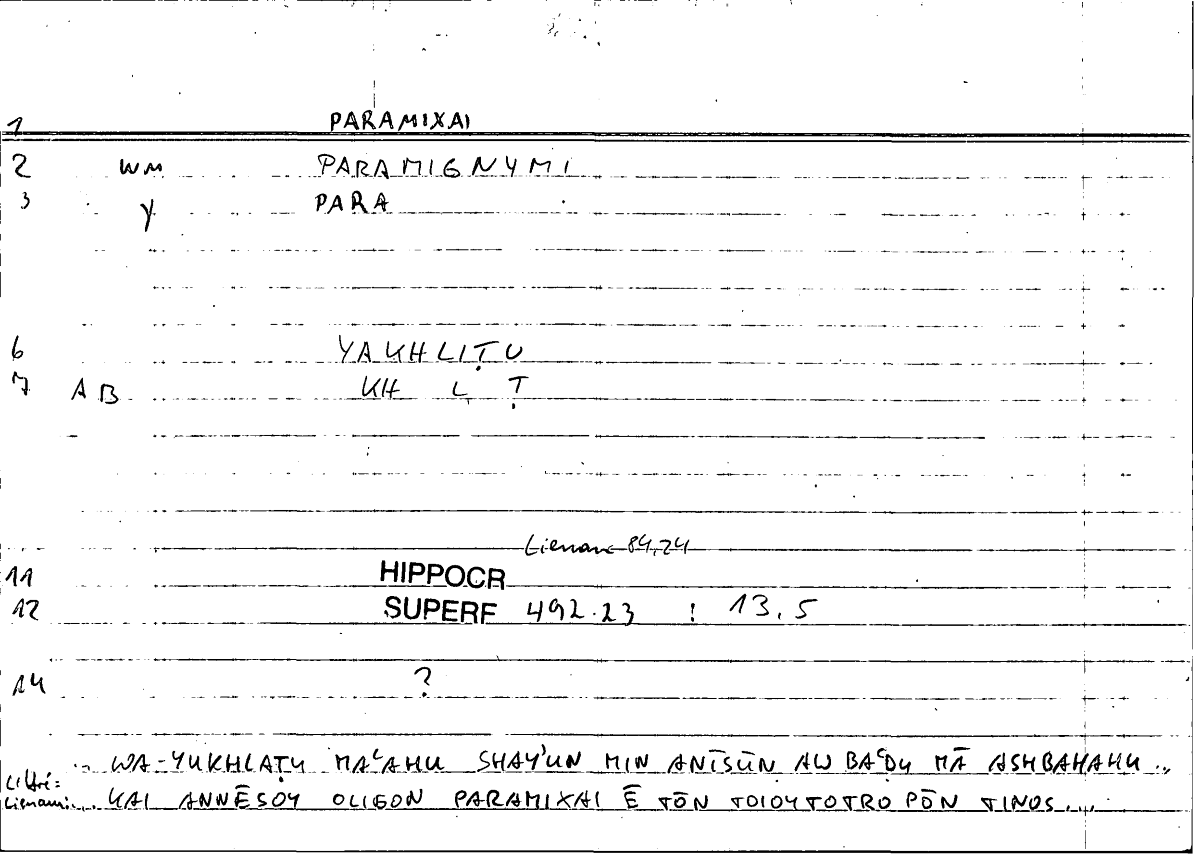 1 PARAMIXAI
2 WM PARAMIGNYMI
3 Y PARA
6 YAKHLIṬU
7 AB KH L Ṭ
Lienau 84,24
11 HIPPOCR
12 SUPERF 492.23 : 13.5
14 ?
.. WA-YUKHLAṬU MAʿAHU SHAY'UN MIN ANĪSŪN AW BAʿḌU MĀ ASHBAHAHU ..
Littré=
Lienau: ... KAI ANNĒSOY OLIGON PARAMIXAI Ē TŌN TOIOYTOTROPŌN TINOS ....